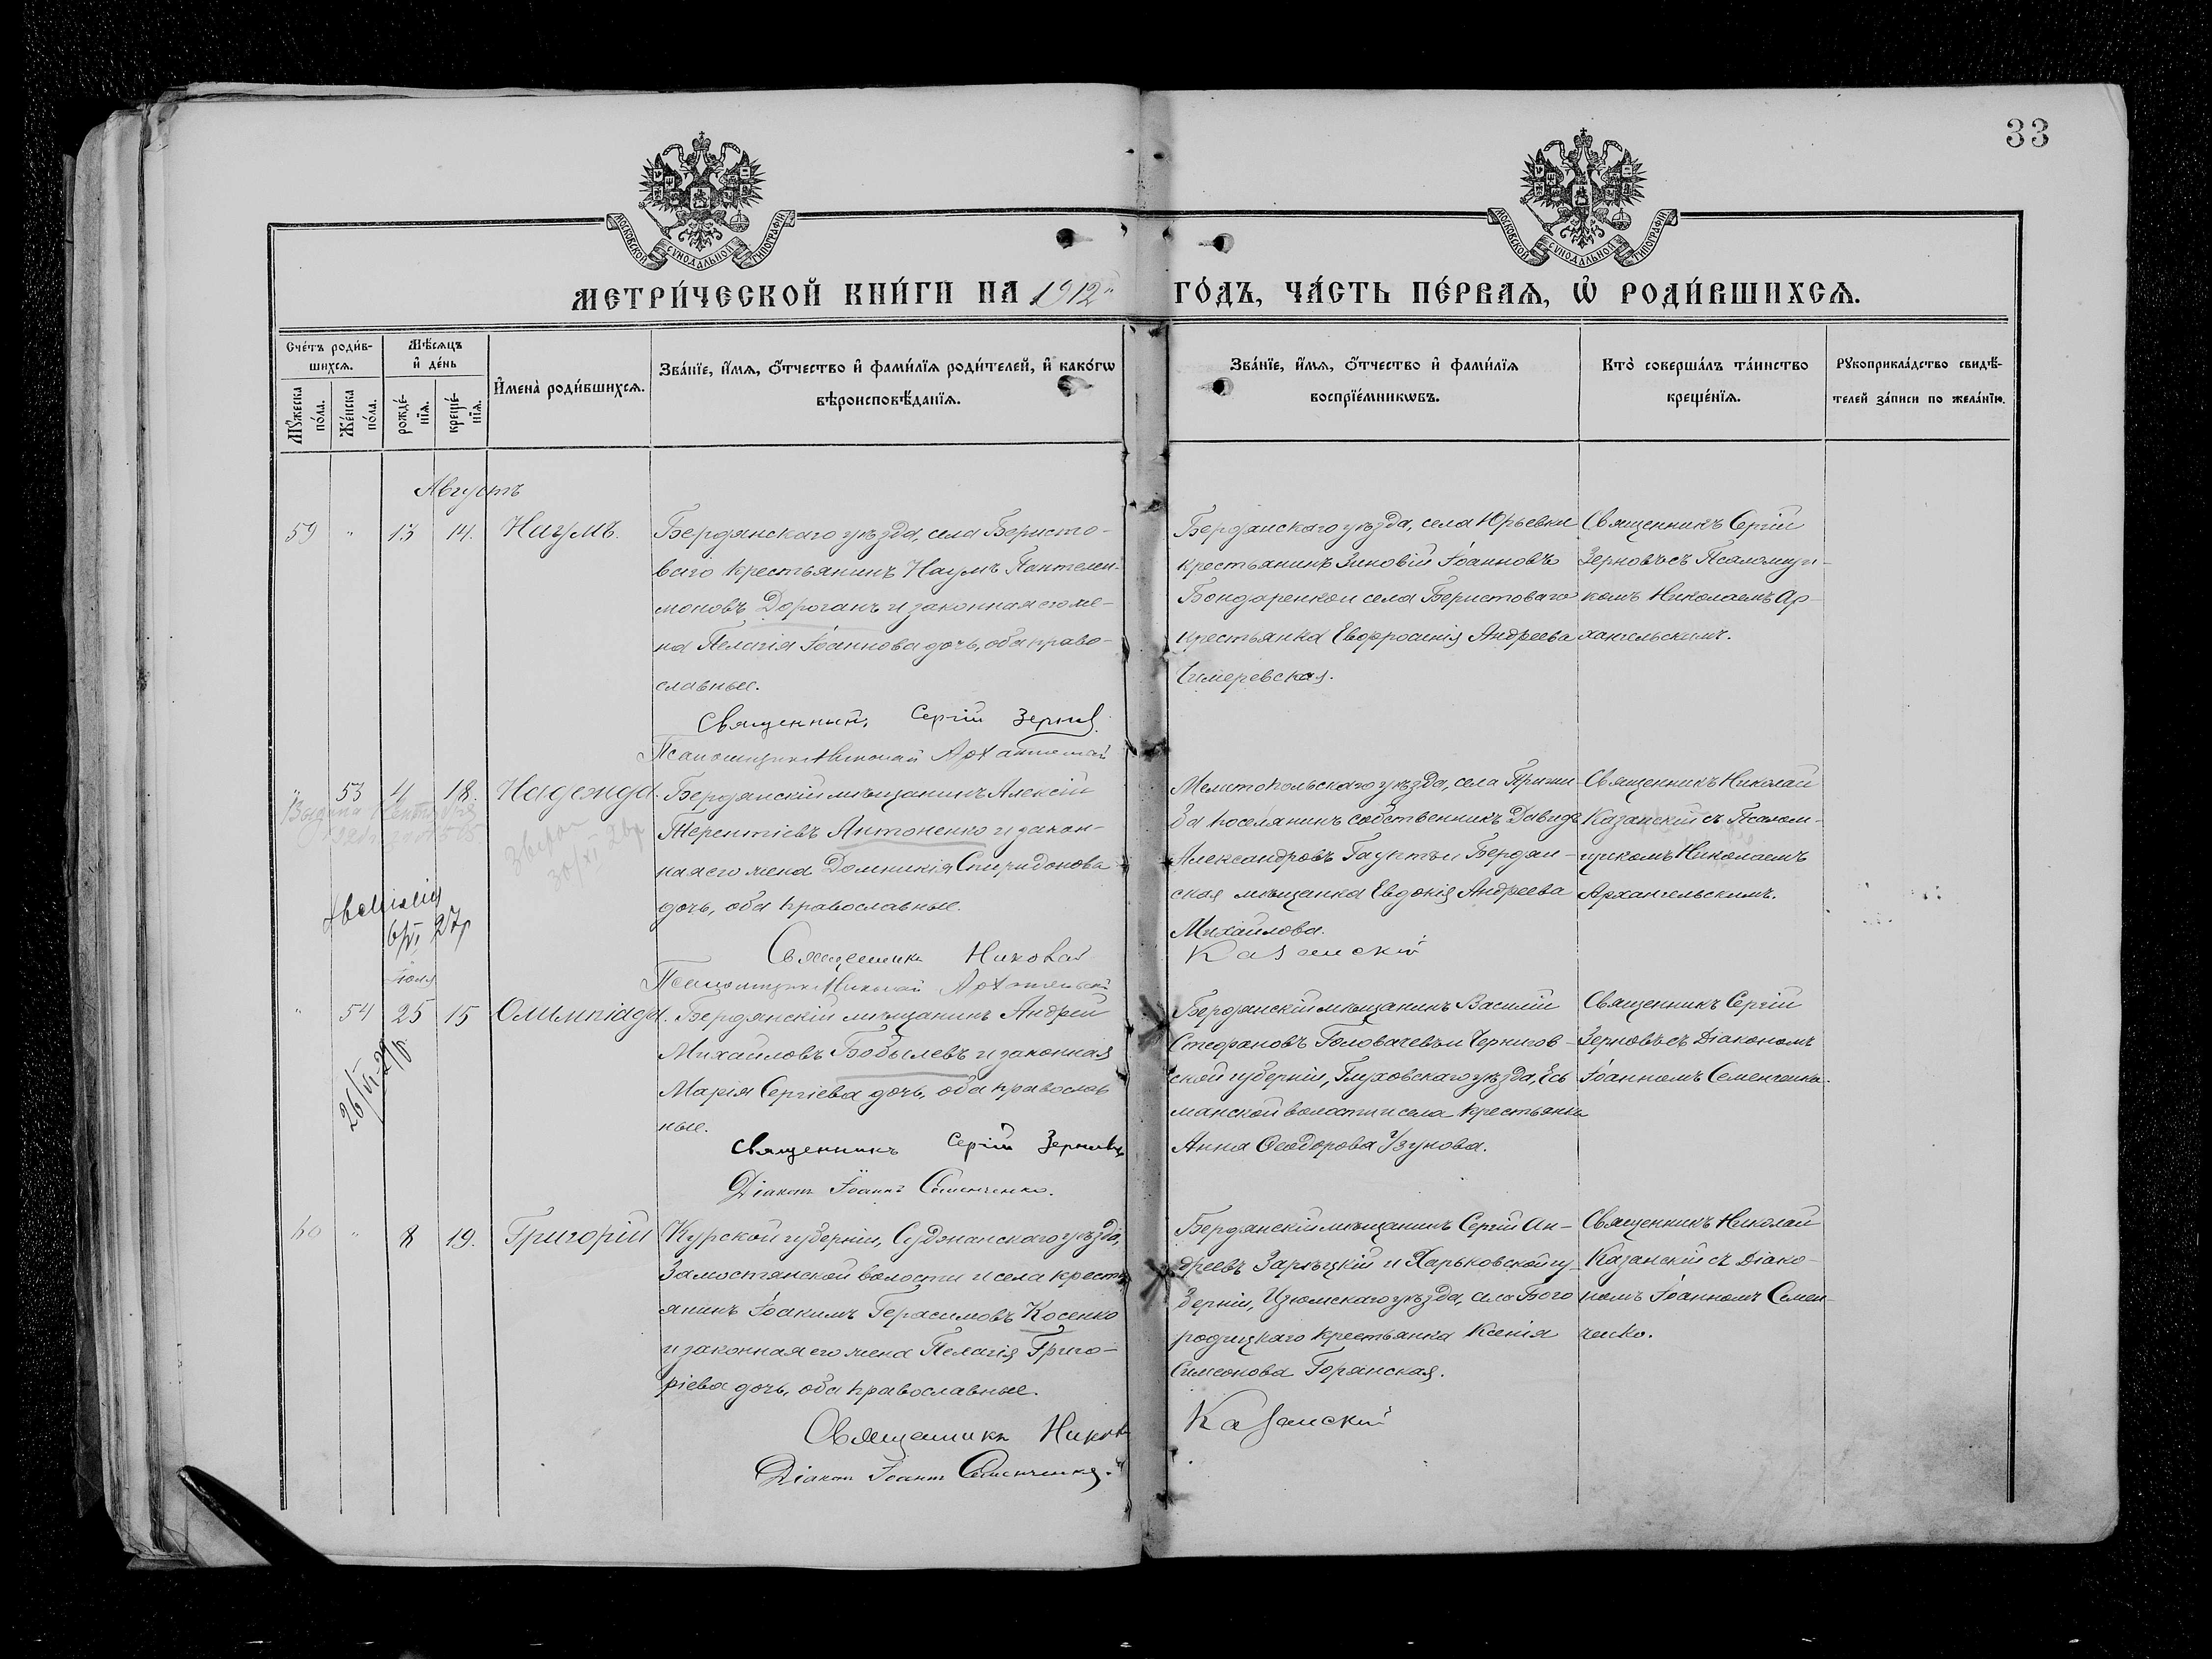 33
МОСКОВСКОЙ СѴНОДАЛЬНОЙ ТИПОГРАФІИ
МОСКОВСКОЙ СѴНОДАЛЬНОЙ ТИПОГРАФІИ
МЕТРИ́ЧЕСКОЙ КНИ́ГИ НА 1912й ГО́ДЪ, ЧА́СТЬ ПЕ́РВАѦ, Ѡ҆ РОДИ́ВШИХСѦ.
Сче́тъ роди́в-
шихсѧ.
Мѣ́сѧцъ
и҆ де́нь
Мꙋжеска по́ла.
Же́нска по́ла.
рожде́-нїѧ.
креще́-нїѧ.
И҆мена̀ роди́вшихсѧ.
Зва́нїе, и҆́мѧ, ѻ҆́тчество и҆ фами́лїѧ роди́телей, и҆ како́гѡ
вѣроисповѣ́данїѧ.
Зва́нїе, и҆́мѧ, ѻ҆́тчество и҆ фами́лїѧ
воспрїе́мникѡвъ.
Кто̀ соверша́лъ та́инство
креще́нїѧ.
Рꙋкоприкла́дство свидѣ́-
телей за́писи по жела́нїю.
Августъ
59 " 13 14. Наумъ.
Бердянскаго уѣзда, села Беристо-
ваго крестьянинъ Наумъ Пантелеи-
моновъ Дороганъ и законная его же-
на Пелагія Іоаннова дочь, оба право-
славные.
Священникъ Сергій Зерновъ
Псаломщикъ Николай Архангельскій
Бердянскаго уѣзда, села Юрьевки
крестьянинъ Зиновій Іоанновъ
Бондаренко и села Беристоваго
крестьянка Евфросинія Андреева
Чимеревская.
Священникъ Сергій
Зерновъ съ Псаломщи-
комъ Николаемъ Ар-
хангельскимъ.
" 53 4 18. Надежда.
Бердянскій мѣщанинъ Алексій
Терентіевъ Антоненко и закон-
ная его жена Домникія Спиридонова
дочь, оба православные.
Священникъ Николай Казанскій
Псаломщикъ Николай Архангельскій
Мелитопольскаго уѣзда, села Приши-
ба поселянинъ собственникъ Давидъ
Александровъ Гауптъ и Бердян-
ская мѣщанка Евдокія Андреева
Михайлова.
Священникъ Николай
Казанскій съ Псалом-
щикомъ Николаемъ
Архангельскимъ.
Выдана
6/VI 27р
іюля
" 54 25 15 Олимпіада.
26/VI-29р
Бердянскій мѣщанинъ Андрей
Михаиловъ Бобылевъ и законная
Марія Сергіева дочь, оба православ
ные.
Священникъ Сергій Зерновъ
Діаконъ Іоаннъ Семенченко.
Бердянскій мѣщанинъ Василій
Стефановъ Головачевъ и Чернигов-
ской губерніи, Глуховскаго уѣзда, Есь
манской волости и села крестьянка
Анна Ѳеодорова Узунова.
Священникъ Сергій
Зерновъ съ Діакономъ
Іоанномъ Семенченко.
60 " 8 19. Григорій
Курской губерніи, Суджанскаго уѣзда,
Замостянской волости и села кресть
янинъ Іоакимъ Герасимовъ Косенко
и законная его жена Пелагія Григо-
ріева дочь, оба православные.
Священникъ Николай Казанскій
Діаконъ Іоаннъ Семенченко.
Бердянскій мѣщанинъ Сергій Ан-
дреевъ Зарѣцкій и Харьковской гу-
берніи, Изюмскаго уѣзда, села Бого
родицкаго крестьянка Ксенія
Симеонова Горянская.
Священникъ Николай
Казанскій съ Діако-
номъ Іоанномъ Семен-
ченко.